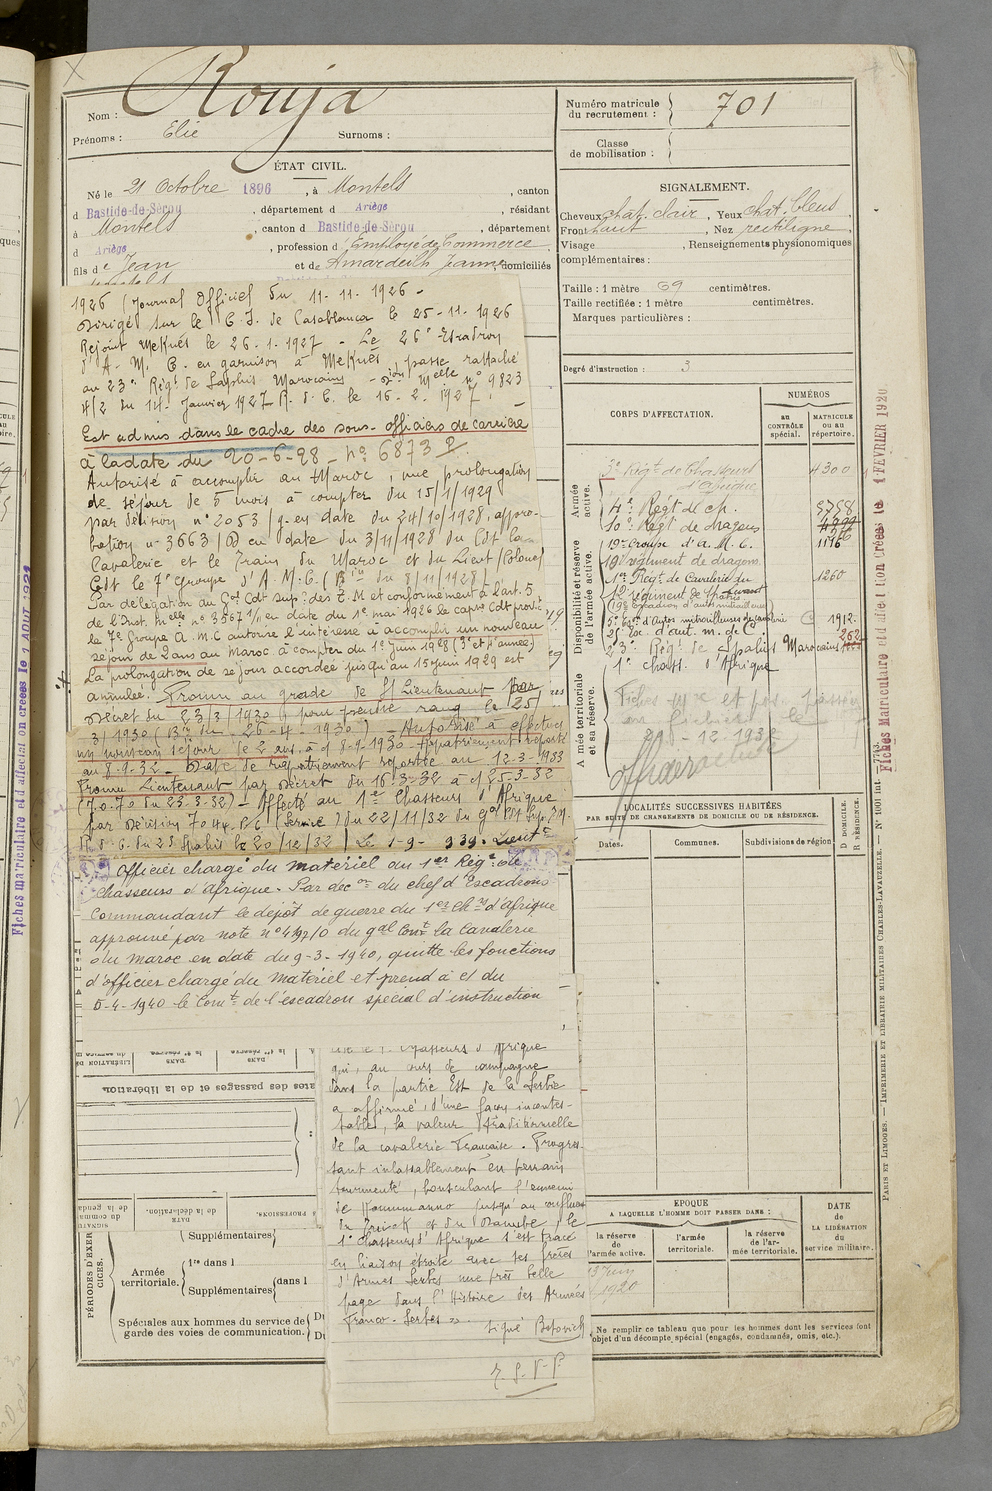 Nom : Rouja
Prénoms : Elie Surnoms :
ÉTAT CIVIL.
Né le 21 Octobre 1896, à Montels, canton
d Bastide-de-Sérou, département d Ariège, résidant
à Montels, canton d Bastide-de-Sérou, département
d Ariège, profession d'Employé de Commerce
fils de Jean et de Amardeilh Jeanne, domiciliés
1926 (Journal Officiel du 11-11-1926-
Dirigé sur le C.I. de Casablanca le 25-11-1926
Rejoint Meknès le 26-1-1927 - Le 26e Escadron
d'A-M.C. en garnison à Meknès, passe rattaché
au 23e Régt de Saphis Marocains - no 9823
4/2 du 14 Janvier 1927 B. d. C. le 16-2-1927.
Est admis dans le cadre des sous-officiers de carrière
à la date du 20-6-28 - No 6873 P.
Autorisé à accomplir au Maroc, une prolongation
de séjour de 5 mois à compter du 15/1/1929
par décision no 2053/g. en date du 24/10/1928, appro-
bation no 3663/D en date du 3/11/1928 du Cdt la
Cavalerie et le Train du Maroc et du Lieut/Colonel
Cdt le 7e Groupe d'A.M.C. (Bin du 8/11/1928)
Par délégation du Gal Cdt Sup. des T.M et conformément à l'art. 5
de l'Inst. Mielle no 3567 1/11 en date du 1er mai 1926 le capne Cdt provre
le 7e Groupe A.M.C autorise l'intéressé à accomplir un nouveau
séjour de 2 ans au Maroc à compter du 1er juin 1928 (3e et 4e année)
La prolongation de séjour accordée jusqu'au 15 juin 1929 est
annulée. Promu au grade de S/Lieutenant par
Décret du 23/3/1930 pour prendre rang le 25/
3/1930 (Bin du 26-4-1930) - Autorisé à effectuer
un nouveau séjour de 2 ans, à c/ 8-9-1930 - Rapatriement reporté
au 8-9-32 - Date de rapatriement reportée au 12-3-1933
Promu Lieutenant par Décret du 16-3-32 à c/ 25-3-32
(J.O. 70 du 23-3-32) - Affecté au 1er Chasseurs d'Afrique
par Décision 7044 P.C (Service) du 22/11/32 du Gal Cdt Sup. T.M.
le 20/12/32 / Le 1-9-939. Lieut
Officier chargé du matériel au 1er Régt de
chasseurs d'Afrique. Par decon du chef d'Escadrons
Commandant le dépôt de guerre du 1er Chrs d'Afrique
approuvé par note no 4197/0 du gal Comt la Cavalerie
du Maroc en date du 9-3-1940, quitte les fonctions
d'officier chargé du matériel et prend à ct du
5-4-1940 le Comt de l'escadron spécial d'instruction
LIBÉRATION DU
DANS la 2e
DANS la 1re
ates des passages et de la libération
chasseurs d'Afrique
qui, au cours de campagne
dans la partie Est de la Serbie
a affirmé, d'une façon incontes-
table, la valeur traditionnelle
de la cavalerie Française. Progres-
sant inlassablement en terrain
tourmenté, bousculant l'ennemi
de Koumanovo jusqu'au confluent
du Timok et du Danube, le
1er Chasseurs d'Afrique s'est tracé
en liaison étroite avec ses frères
d'Armes Serbes une très belle
page dans l'Histoire des Armées
Franco-Serbes ».
Signé Bojovich
T.S.V.P
SIGNATURE du command de la genda
DATE de la déclaration.
PROFESSIONS.
PÉRIODES D'EXERCICES.
Supplémentaires
Armée territoriale.
1re dans l
Supplémentaires dans l
Spéciales aux hommes du service de
garde des voies de communication.
Numéro matricule du recrutement : 701
Classe de mobilisation :
SIGNALEMENT.
Cheveux chat. clair, Yeux chat. bleus
Front haut, Nez rectiligne
Visage , Renseignements physionomiques
complémentaires :
Taille : 1 mètre 69 centimètres.
Taille rectifiée : 1 mètre centimètres.
Marques particulières :
Degré d'instruction : 3
CORPS D'AFFECTATION.
NUMÉROS
au CONTRÔLE spécial.
MATRICULE ou au répertoire.
Armée active.
5e Régt de Chasseurs d'Afrique 4300
4e Régt de ch. 5758
10e Régt de dragons
19e Groupe d'A.M.C. 1176
Disponibilité et réserve de l'armée active.
19e régiment de dragons
1er Régt de Cavalerie du Levant 1260
12e régiment de Spahis
(19e Escadron d'auto mitrailleuses)
5e Esc. d'autos mitrailleuses de cavalerie C 1912
25e Esc. d'aut. m. de C.
23e Régt de Spahis Marocains 262
1er chass. d'Afrique
Armée territoriale et sa réserve.
21-12-1932
LOCALITÉS SUCCESSIVES HABITÉES
PAR SUITE DE CHANGEMENTS DE DOMICILE OU DE RÉSIDENCE.
Dates.
Communes.
Subdivisions de région
D DOMICILE.
R RÉSIDENCE.
EPOQUE
A LAQUELLE L'HOMME DOIT PASSER DANS :
la réserve de l'armée active.
l'armée territoriale.
la réserve de l'armée territoriale.
DATE de LA LIBÉRATION du service militaire.
1920
Ne remplir ce tableau que pour les hommes dont les services font
objet d'un décompte spécial (engagés, condamnés, omis, etc.).
Fiches Matriculaire et d'affectation Créées le 1 FEVRIER 1920
Fiches matriculaire et d'affectation créées le 1 AOUT 1921
PARIS ET LIMOGES. — IMPRIMERIE ET LIBRAIRIE MILITAIRES CHARLES-LAVAUZELLE. — N° 1001 int.